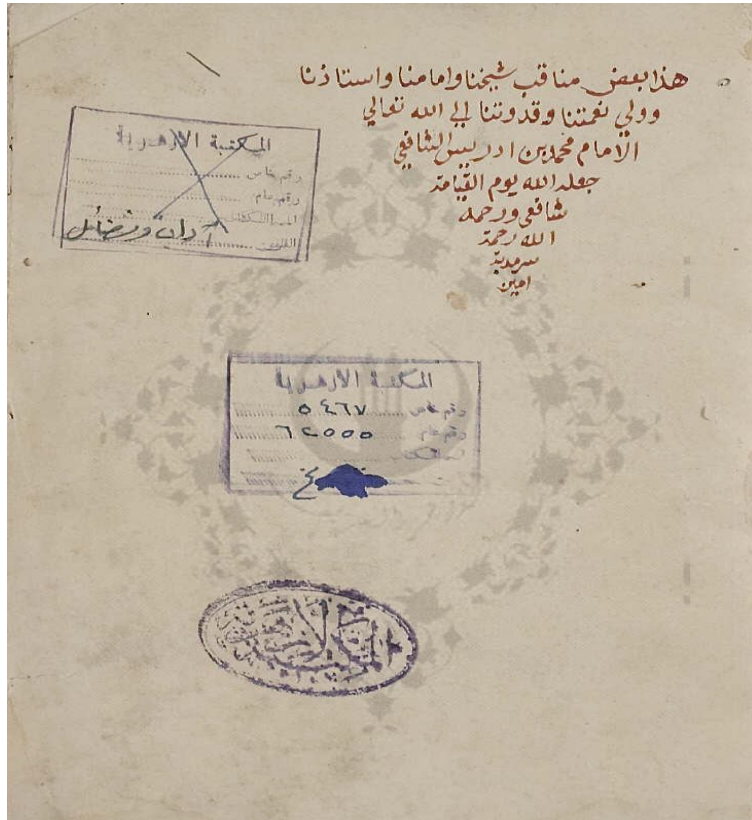 هذا بعض مناقب شيخنا وامامنا واستاذنا
وولي نعمتنا وقدوتنا الي الله تعالي
الامام محمد بن ادريس الشافعي
جعله الله يوم القيامة
شافعي ورحمه
الله رحمة
سرمدية
امين
المكتبة الازهرية
رقم خاص
رقم عام
اداب وفضائل
المكتبة الازهرية
رقم خاص ٥٤٦٧
رقم عام ٦٢٥٥٥
المكتبة الازهرية